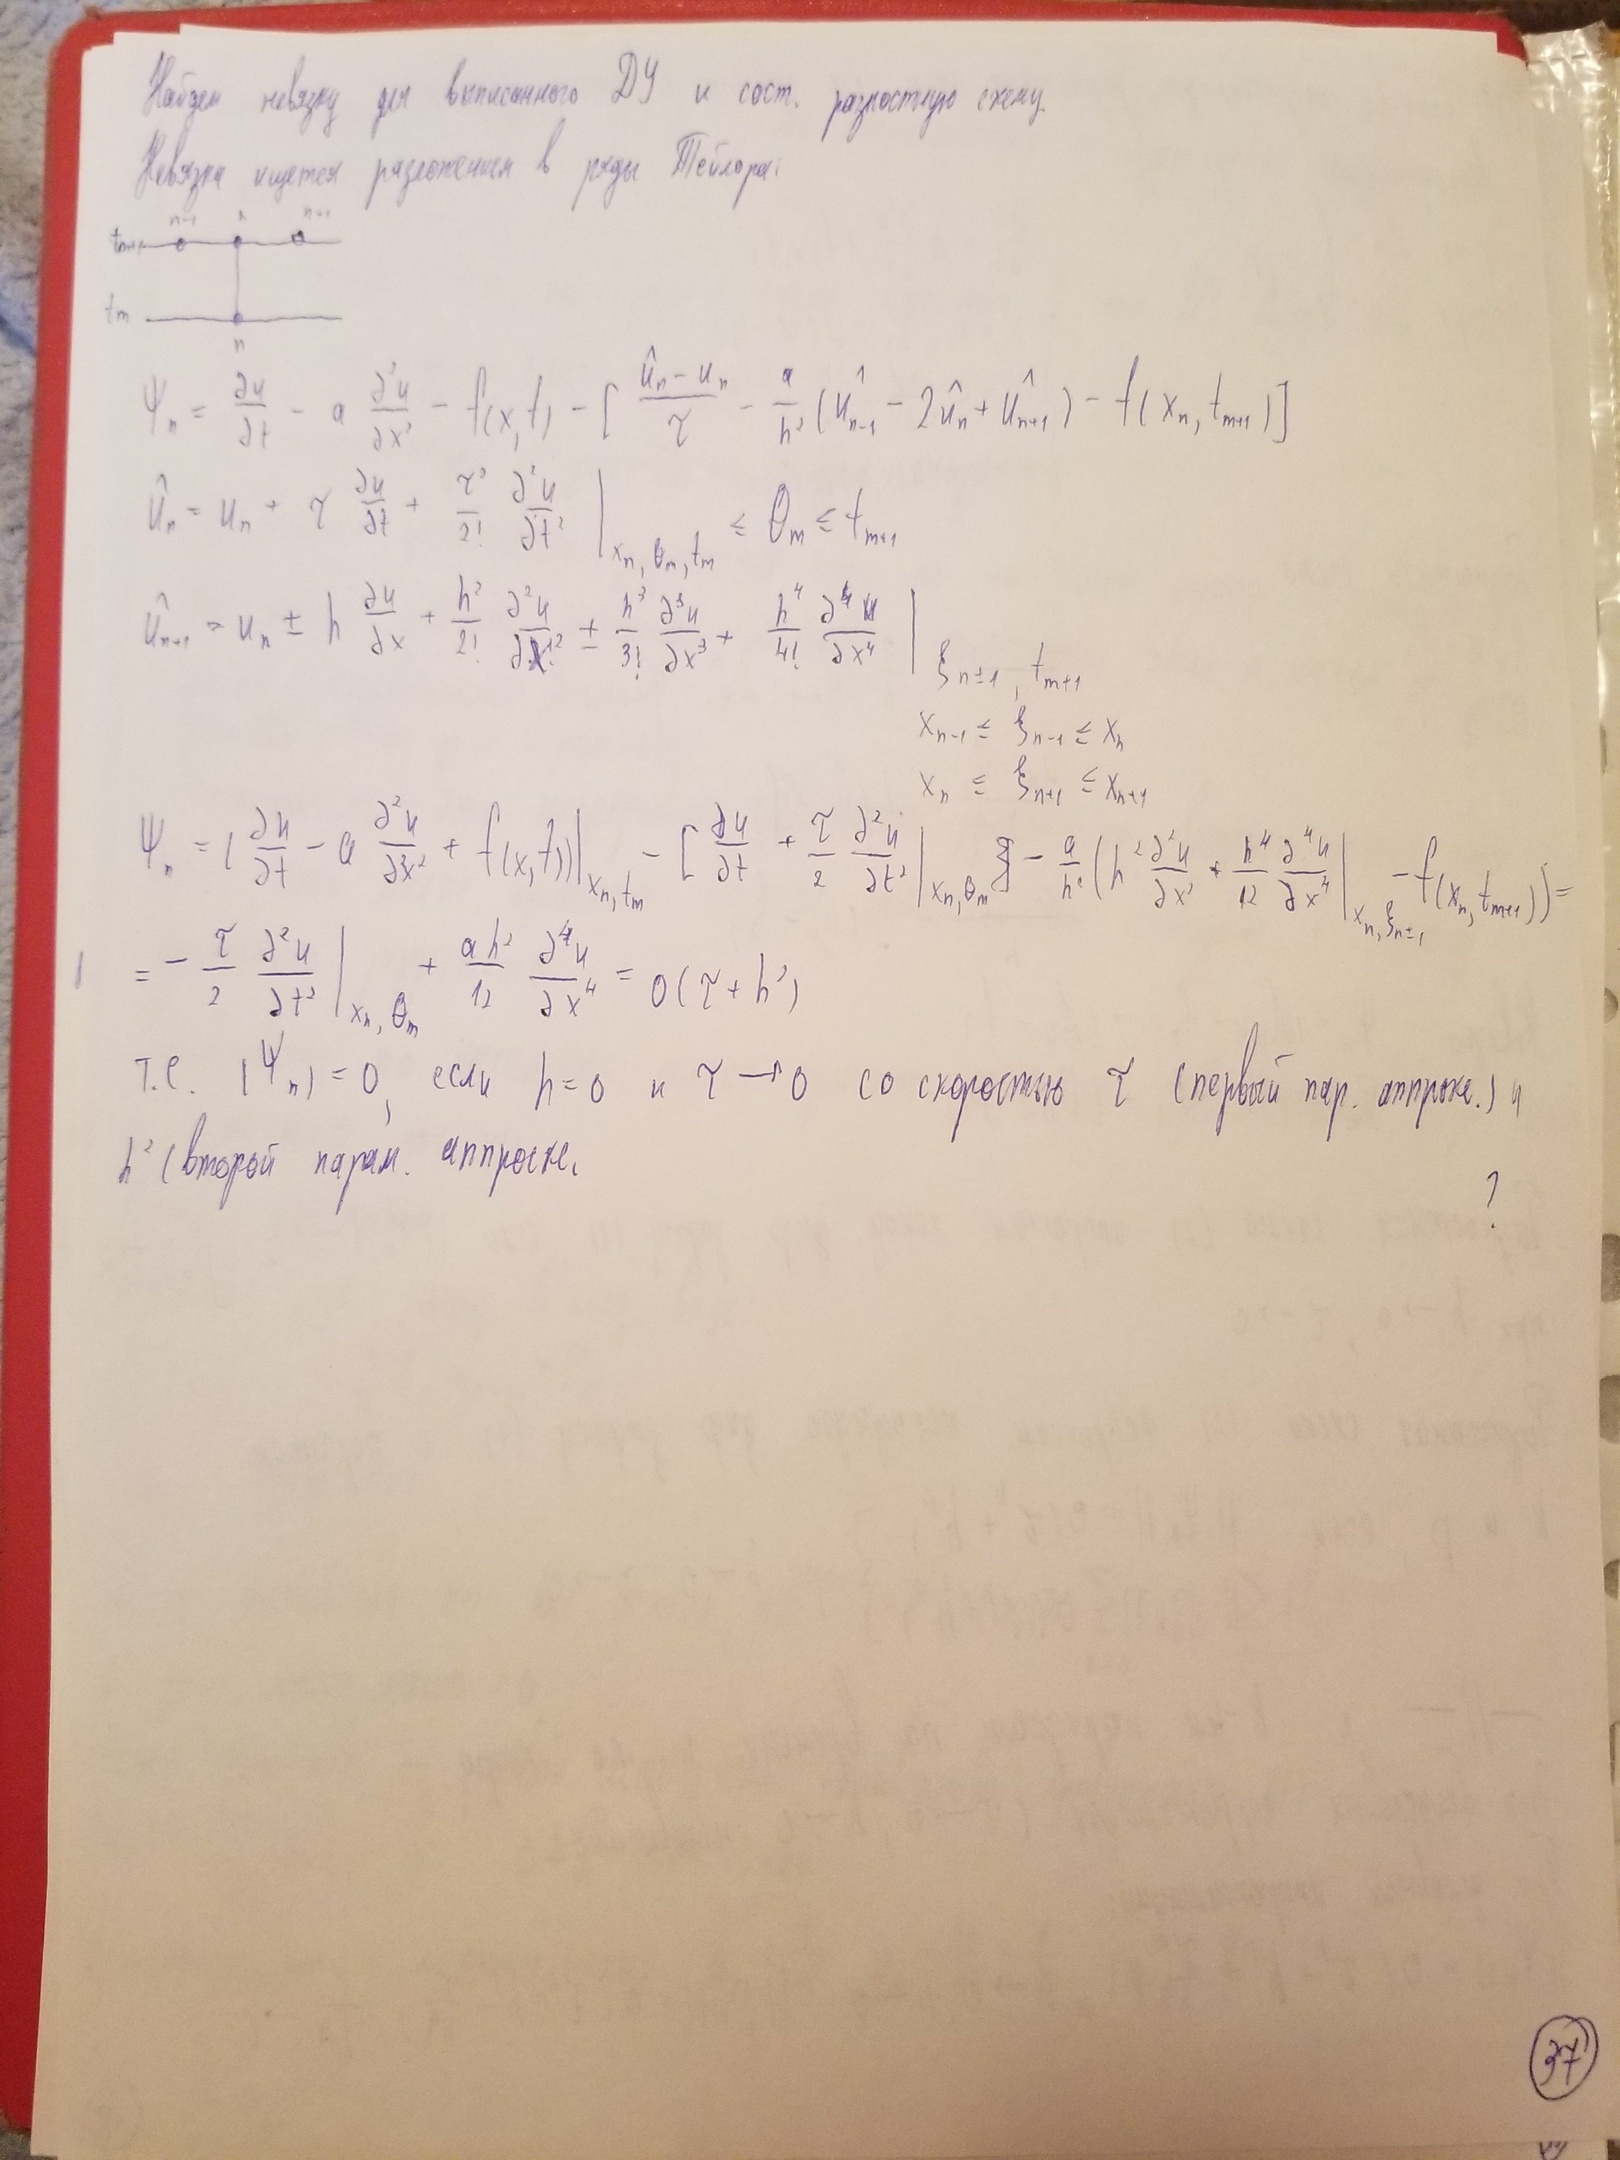 Найдем невязку для выписанного ДУ и сост. разностную схему.
Невязка ищется разложением в ряды Тейлора:
n-1 n n+1
t_{m+1}
t_m
n
Ψ_n = ∂u/∂t - a ∂²u/∂x² - f(x,t) - [ (û_n - u_n)/τ - a/h² (û_{n-1} - 2û_n + û_{n+1}) - f(x_n, t_{m+1}) ]
û_n = u_n + τ ∂u/∂t + τ²/2! ∂²u/∂t² |_{x_n, θ_m, t_m} ≤ θ_m ≤ t_{m+1}
û_{n+1} = u_n ± h ∂u/∂x + h²/2! ∂²u/∂x² ± h³/3! ∂³u/∂x³ + h⁴/4! ∂⁴u/∂x⁴ |_{ξ_{n±1}, t_{m+1}}
x_{n-1} ≤ ξ_{n-1} ≤ x_n
x_n ≤ ξ_{n+1} ≤ x_{n+1}
Ψ_n = (∂u/∂t - a ∂²u/∂x² + f(x,t))|_{x_n, t_m} - [ ∂u/∂t + τ/2 ∂²u/∂t² |_{x_n, θ_m} ] - a/h² (h² ∂²u/∂x² + h⁴/12 ∂⁴u/∂x⁴ |_{x_n, ξ_{n±1}} - f(x_n, t_{m+1})) =
= - τ/2 ∂²u/∂t² |_{x_n, θ_m} + ah²/12 ∂⁴u/∂x⁴ = 0(τ + h²)
т.е. (Ψ_n) = 0, если h = 0 и τ → 0 со скоростью τ (первый пар. аппрокс.) и
h² (второй парам. аппрокс.
?
37